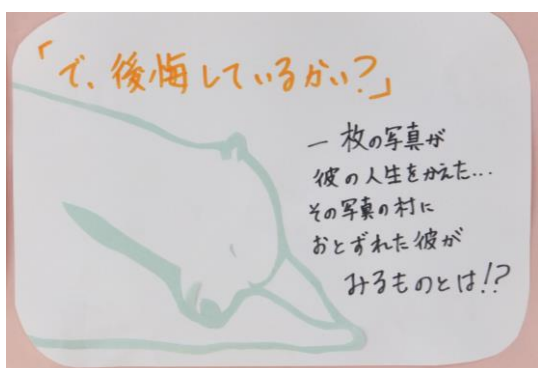 「で、後悔しているかい?」
一枚の写真が
彼の人生をかえた...
その写真の村に
おとずれた彼が
みるものとは!?